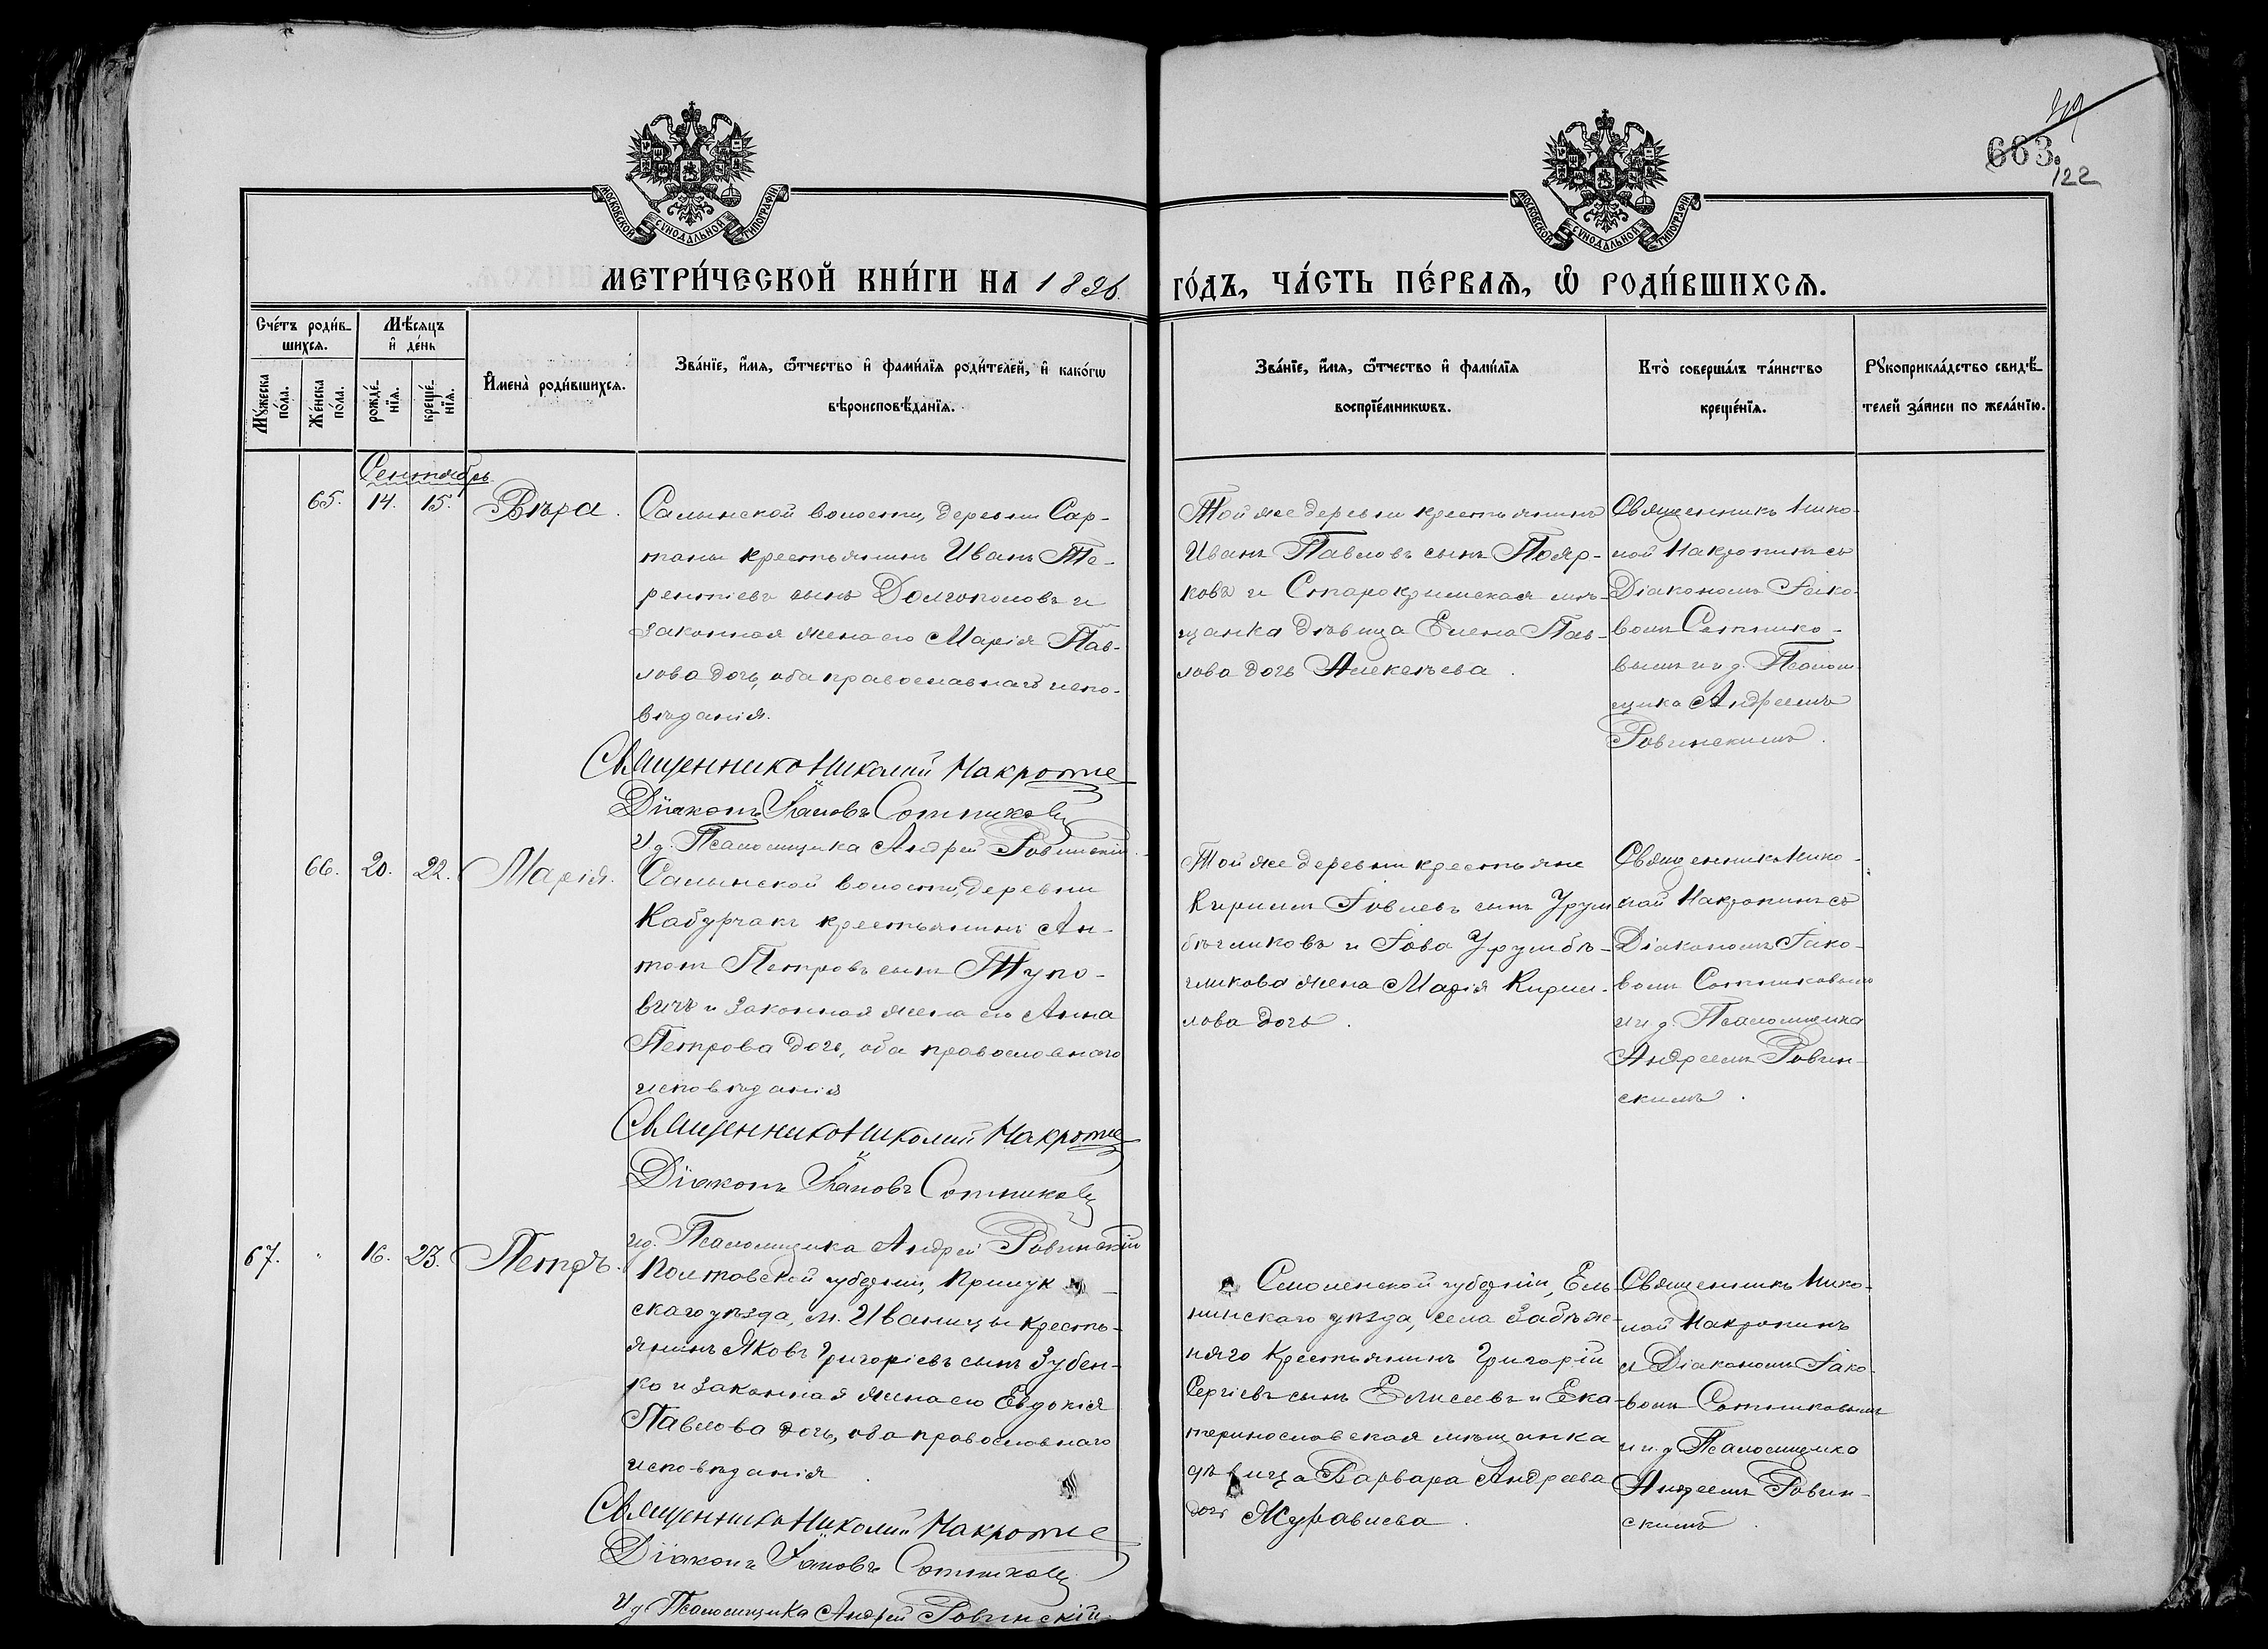 663.
122
МОСКОВСКОЙ СѴНОДАЛЬНОЙ ТИПОГРАФІИ
МОСКОВСКОЙ СѴНОДАЛЬНОЙ ТИПОГРАФІИ
МЕТРИ́ЧЕСКОЙ КНИ́ГИ НА 1896
ГО́ДЪ, ЧА́СТЬ ПЕ́РВАѦ, Ѡ҆ РОДИ́ВШИХСѦ.
Сче́тъ роди́в-
шихся.
Мѣ́сяцъ
и҆ де́нь
Мꙋ́жеска
по́ла.
Же́нска
по́ла.
рожде́-
нїя.
креще́-
нїя.
И҆мена̀ роди́вшихся.
Зва́нїе, и҆́мя, ѻ҆́тчество и҆ фами́лїя роди́телей, и҆ како́гѡ
вѣроисповѣ́данїя.
Зва́нїе, и҆́мя, ѻ҆́тчество и҆ фами́лїя
воспрїе́мникѡвъ.
Кто̀ соверша́лъ та́инство
креще́нїя.
Рꙋкоприкла́дство свидѣ́-
телей за́писи по жела́нїю.
Сентябрь
65. 14. 15. Вѣра.
Салынской волости, деревни Сар-
таны крестьянинъ Иванъ Те-
рентіевъ сынъ Долгополовъ и
законная жена его Марія Пав-
лова дочь, оба православнаго испо-
вѣданія.
Священникъ Николай Макроти
Діаконъ Іаковъ Сотниковъ
И.д. Псаломщика Андрей Ровинскій
Той же деревни крестьянинъ
Иванъ Павловъ сынъ Пояр-
ковъ и Старокрымская мѣ-
щанка дѣвица Елена Пав-
лова дочь Алексѣева.
Священникъ Нико-
лай Макротинъ съ
Діакономъ Іако-
вомъ Сотнико-
вымъ и и.д. Псалом-
щика Андреемъ
Ровинскимъ.
66. 20. 22. Марія.
Салынской волости, деревни
Кабурчакъ крестьянинъ Ан-
тонъ Петровъ сынъ Тупо-
вичъ и законная жена его Анна
Петрова дочь, оба православнаго
исповѣданія
Священникъ Николай Макроти
Діаконъ Іаковъ Сотниковъ
и.д. Псаломщика Андрей Ровинскій
Той же деревни крестьяне
Кириллъ Іовлевъ сынъ Урум-
бѣгликовъ и Іова Урумбѣ-
гликова жена Марія Кирил-
лова дочь.
Священникъ Нико-
лай Макротинъ съ
Діакономъ Іако-
вомъ Сотниковымъ
и и.д. Псаломщика
Андреемъ Ровин-
скимъ.
67. " 16. 23. Петръ.
Полтавской губерніи, Прилук-
скаго уѣзда, м. Иваницы кресть-
янинъ Яковъ Григоріевъ сынъ Зубен-
ко и законная жена его Евдокія
Павлова дочь, оба православнаго
исповѣданія.
Священникъ Николай Макроти
Діаконъ Іаковъ Сотниковъ
И.д. Псаломщика Андрей Ровинскій
Смоленской губерніи, Ель-
нинскаго уѣзда, села Забѣж-
няго крестьянинъ Григорій
Сергіевъ сынъ Елисеевъ и Ека-
теринославская мѣщанка
дѣвица Варвара Андреева
дочь Журавлева.
Священникъ Нико-
лай Макротинъ
съ Діакономъ Іако-
вомъ Сотниковымъ
и и.д. Псаломщика
Андреемъ Ровин-
скимъ.